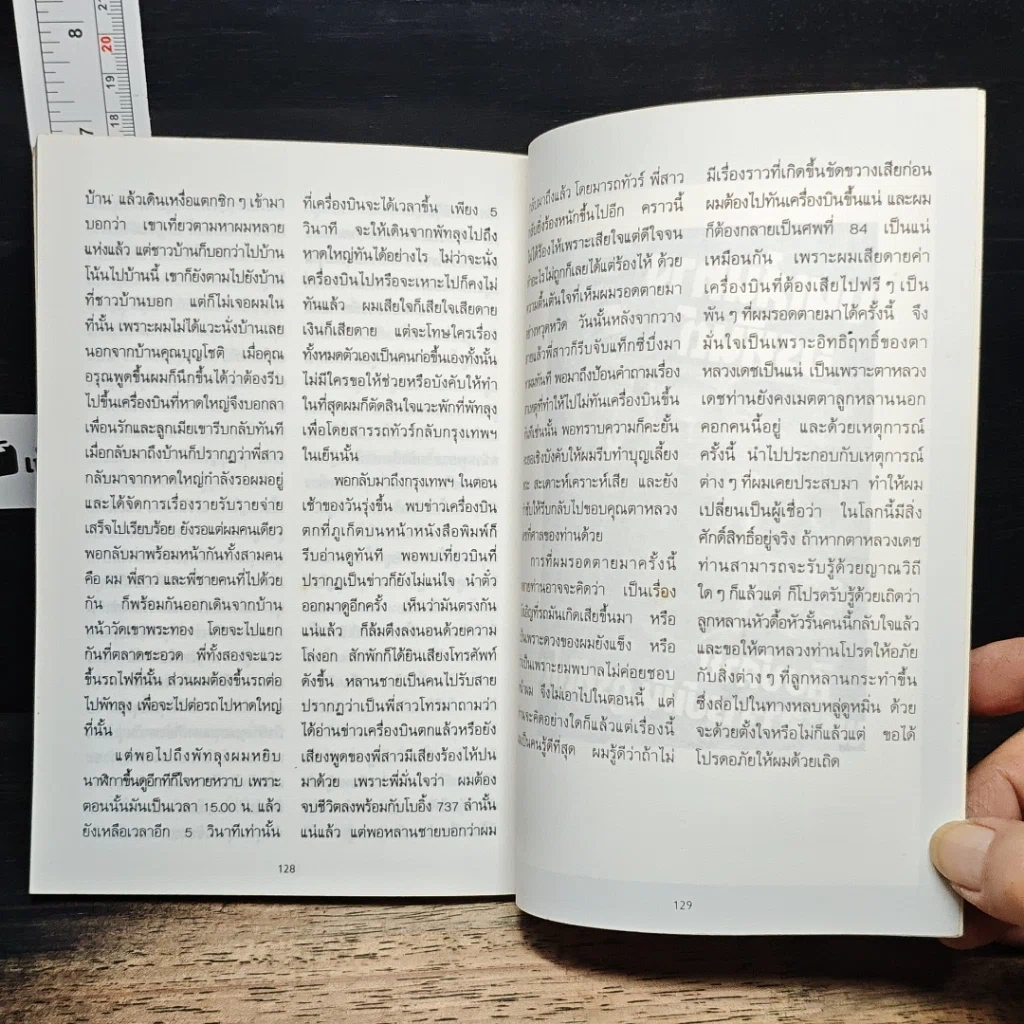 8
7
21
20
19
18
บ้าน แล้วเดินเหงื่อแตกซิก ๆ เข้ามา
บอกว่า เขาเที่ยวตามหาผมหลาย
แห่งแล้ว แต่ชาวบ้านก็บอกว่าไปบ้าน
โน้นไปบ้านนี้ เขาก็ยังตามไปยังบ้าน
ที่ชาวบ้านบอก แต่ก็ไม่เจอผมใน
ที่นั้น เพราะผมไม่ได้แวะนั่งบ้านเลย
นอกจากบ้านคุณบุญโชติ เมื่อคุณ
อรุณพูดขึ้นผมก็นึกขึ้นได้ว่าต้องรีบ
ไปขึ้นเครื่องบินที่หาดใหญ่จึงบอกลา
เพื่อนรักและลูกเมียเขารีบกลับทันที
เมื่อกลับมาถึงบ้านก็ปรากฏว่าพี่สาว
กลับมาจากหาดใหญ่กำลังรอผมอยู่
และได้จัดการเรื่องรายรับรายจ่าย
เสร็จไปเรียบร้อย ยังรอแต่ผมคนเดียว
พอกลับมาพร้อมหน้ากันทั้งสามคน
คือ ผม พี่สาว และพี่ชายคนที่ไปด้วย
กัน ก็พร้อมกันออกเดินจากบ้าน
หน้าวัดเขาพระทอง โดยจะไปแยก
กันที่ตลาดชะอวด พี่ทั้งสองจะแวะ
ขึ้นรถไฟที่นั้น ส่วนผมต้องขึ้นรถต่อ
ไปพัทลุง เพื่อจะไปต่อรถไปหาดใหญ่
ที่นั้น
แต่พอไปถึงพัทลุงผมหยิบ
นาฬิกาขึ้นดูอีกทีก็ใจหายหวาบ เพราะ
ตอนนั้นมันเป็นเวลา 15.00 น. แล้ว
ยังเหลือเวลาอีก 5 วินาทีเท่านั้น
ที่เครื่องบินจะได้เวลาขึ้น เพียง 5
วินาที จะให้เดินจากพัทลุงไปถึง
หาดใหญ่ทันได้อย่างไร ไม่ว่าจะนั่ง
เครื่องบินไปหรือจะเหาะไปก็คงไม่
ทันแล้ว ผมเสียใจก็เสียใจเสียดาย
เงินก็เสียดาย แต่จะโทษใครเรื่อง
ทั้งหมดตัวเองเป็นคนก่อขึ้นเองทั้งนั้น
ไม่มีใครขอให้ช่วยหรือบังคับให้ทำ
ในที่สุดผมก็ตัดสินใจแวะพักที่พัทลุง
เพื่อโดยสารรถทัวร์กลับกรุงเทพฯ
ในเย็นนั้น
พอกลับมาถึงกรุงเทพฯ ในตอน
เช้าของวันรุ่งขึ้น พบข่าวเครื่องบิน
ตกที่ภูเก็ตบนหน้าหนังสือพิมพ์ก็
รีบอ่านดูทันที พอพบเที่ยวบินที่
ปรากฏเป็นข่าวก็ยังไม่แน่ใจ นำตั๋ว
ออกมาดูอีกครั้ง เห็นว่ามันตรงกัน
แน่แล้ว ก็ล้มตึงลงนอนด้วยความ
โล่งอก สักพักก็ได้ยินเสียงโทรศัพท์
ดังขึ้น หลานชายเป็นคนไปรับสาย
ปรากฏว่าเป็นพี่สาวโทรมาถามว่า
ได้อ่านข่าวเครื่องบินตกแล้วหรือยัง
เสียงพูดของพี่สาวมีเสียงร้องไห้ปน
มาด้วย เพราะพี่มั่นใจว่า ผมต้อง
จบชีวิตลงพร้อมกับโบอิ้ง 737 ลำนั้น
แน่แล้ว แต่พอหลานชายบอกว่าผม
128
กลับมาถึงแล้ว โดยมารถทัวร์ พี่สาว
กลับยิ่งร้องหนักขึ้นไปอีก คราวนี้
ไม่ได้ร้องไห้เพราะเสียใจแต่ดีใจจน
ทำอะไรไม่ถูกก็เลยได้แต่ร้องไห้ ด้วย
ความตื้นตันใจที่เห็นผมรอดตายมา
อย่างหวุดหวิด วันนั้นหลังจากวาง
สายแล้วพี่สาวก็รีบจับแท็กซี่บึ่งมา
หาผมทันที พอมาถึงป้อนคำถามเรื่อง
สาเหตุที่ทำให้ไปไม่ทันเครื่องบินขึ้น
ทันทีเช่นนั้น พอทราบความก็คะยั้น
คะยอเชิงบังคับให้ผมรีบทำบุญเลี้ยง
พระ สะเดาะห์เคราะห์เสีย และยัง
กำชับให้รีบกลับไปขอบคุณตาหลวง
เดชที่ศาลของท่านด้วย
การที่ผมรอดตายมาครั้งนี้
หลายท่านอาจจะคิดว่า เป็นเรื่อง
บังเอิญที่รถมันเกิดเสียขึ้นมา หรือ
เป็นเพราะดวงของผมยังแข็ง หรือ
เป็นเพราะยมพบาลไม่ค่อยชอบ
หน้าผม จึงไม่เอาไปในตอนนี้ แต่
ท่านจะคิดอย่างใดก็แล้วแต่เรื่องนี้
ผมเป็นคนรู้ดีที่สุด ผมรู้ดีว่าถ้าไม่
มีเรื่องราวที่เกิดขึ้นขัดขวางเสียก่อน
ผมต้องไปทันเครื่องบินขึ้นแน่ และผม
ก็ต้องกลายเป็นศพที่ 84 เป็นแน่
เหมือนกัน เพราะผมเสียดายค่า
เครื่องบินที่ต้องเสียไปฟรี ๆ เป็น
พัน ๆ ที่ผมรอดตายมาได้ครั้งนี้ จึง
มั่นใจเป็นเพราะอิทธิฤทธิ์ของตา
หลวงเดชเป็นแน่ เป็นเพราะตาหลวง
เดชท่านยังคงเมตตาลูกหลานนอก
คอกคนนี้อยู่ และด้วยเหตุการณ์
ครั้งนี้ นำไปประกอบกับเหตุการณ์
ต่าง ๆ ที่ผมเคยประสบมา ทำให้ผม
เปลี่ยนเป็นผู้เชื่อว่า ในโลกนี้มีสิ่ง
ศักดิ์สิทธิ์อยู่จริง ถ้าหากตาหลวงเดช
ท่านสามารถจะรับรู้ด้วยญาณวิถี
ใด ๆ ก็แล้วแต่ ก็โปรดรับรู้ด้วยเถิดว่า
ลูกหลานหัวดื้อหัวรั้นคนนี้กลับใจแล้ว
และขอให้ตาหลวงท่านโปรดให้อภัย
กับสิ่งต่าง ๆ ที่ลูกหลานกระทำขึ้น
ซึ่งส่อไปในทางหลบหลู่ดูหมิ่น ด้วย
จะด้วยตั้งใจหรือไม่ก็แล้วแต่ ขอได้
โปรดอภัยให้ผมด้วยเถิด
129